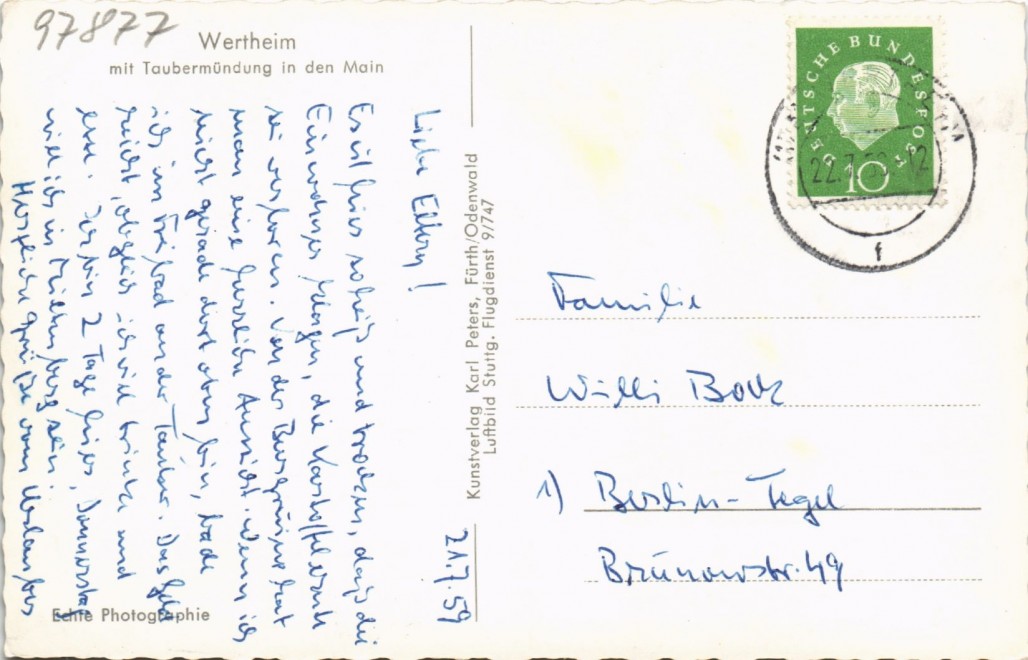 97877
Wertheim
mit Taubermündung in den Main
21.7.59
Liebe Eltern!
Es ist hier so heiß und trocken, daß die
Einwohner klagen, die Kartoffel würde
verloren. Von der Burgruine hat
man eine herrliche Aussicht. Wenn ich
nicht gerade dort oben bin, bade
ich im Freibad an der Tauber. Das Geld
reicht, obgleich ich viel trinke und
esse. Ich bin 2 Tage hier, Donnerstag
will ich in Miltenberg sein.
Herzliche Grüße vom
Echte Photographie
Kunstverlag Karl Peters, Fürth/Odenwald
Luftbild Stuttg. Flugdienst 9/747
DEUTSCHE BUNDESPOST
10
22.7.59.12
f
Familie
Willi Bock
1) Berlin-Tegel
Brunowstr. 49